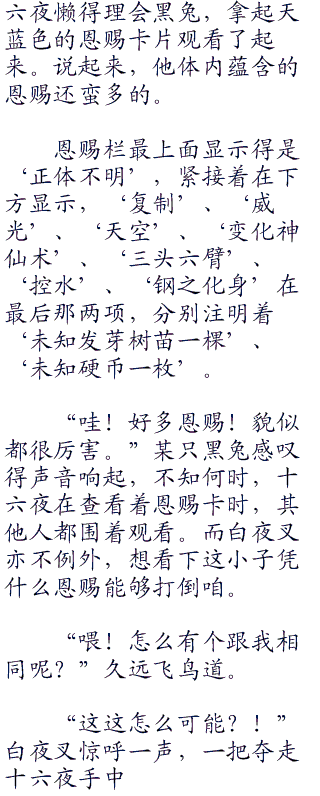 六夜懒得理会黑兔，拿起天
蓝色的恩赐卡片观看了起
来。说起来，他体内蕴含的
恩赐还蛮多的。
恩赐栏最上面显示得是
‘正体不明’，紧接着在下
方显示，‘复制’、‘威
光’、‘天空’、‘变化神
仙术’、‘三头六臂’、
‘控水’、‘钢之化身’在
最后那两项，分别注明着
‘未知发芽树苗一棵’、
‘未知硬币一枚’。
“哇！好多恩赐！貌似
都很厉害。”某只黑兔感叹
得声音响起，不知何时，十
六夜在查看着恩赐卡时，其
他人都围着观看。而白夜叉
亦不例外，想看下这小子凭
什么恩赐能够打倒咱。
“喂！怎么有个跟我相
同呢？”久远飞鸟道。
“这这怎么可能？！”
白夜叉惊呼一声，一把夺走
十六夜手中